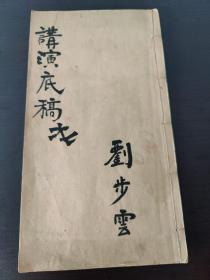 講演底稿
劉步雲